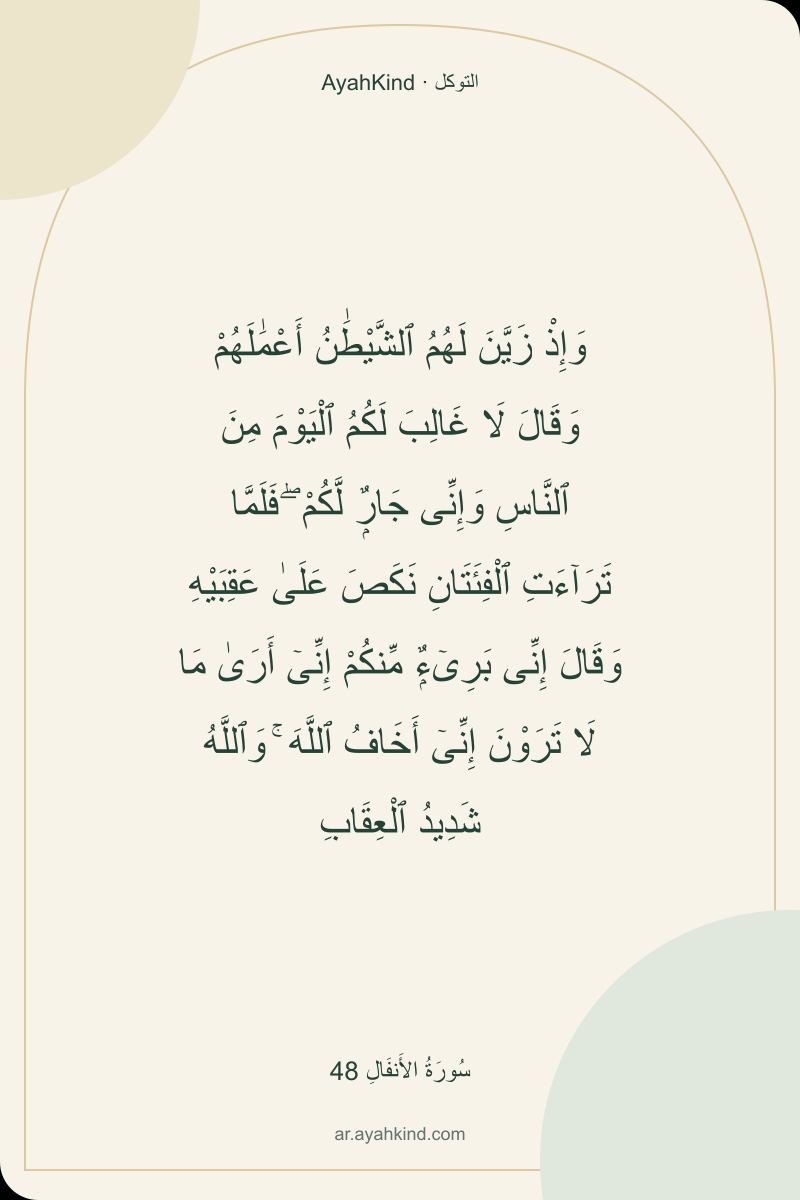 AyahKind · التوكل
وَإِذْ زَيَّنَ لَهُمُ ٱلشَّيْطَٰنُ أَعْمَٰلَهُمْ
وَقَالَ لَا غَالِبَ لَكُمُ ٱلْيَوْمَ مِنَ
ٱلنَّاسِ وَإِنِّى جَارٌۭ لَّكُمْ ۖ فَلَمَّا
تَرَآءَتِ ٱلْفِئَتَانِ نَكَصَ عَلَىٰ عَقِبَيْهِ
وَقَالَ إِنِّى بَرِىٓءٌۭ مِّنكُمْ إِنِّىٓ أَرَىٰ مَا
لَا تَرَوْنَ إِنِّىٓ أَخَافُ ٱللَّهَ ۚ وَٱللَّهُ
شَدِيدُ ٱلْعِقَابِ
سُورَةُ الأَنفَالِ 48
ar.ayahkind.com